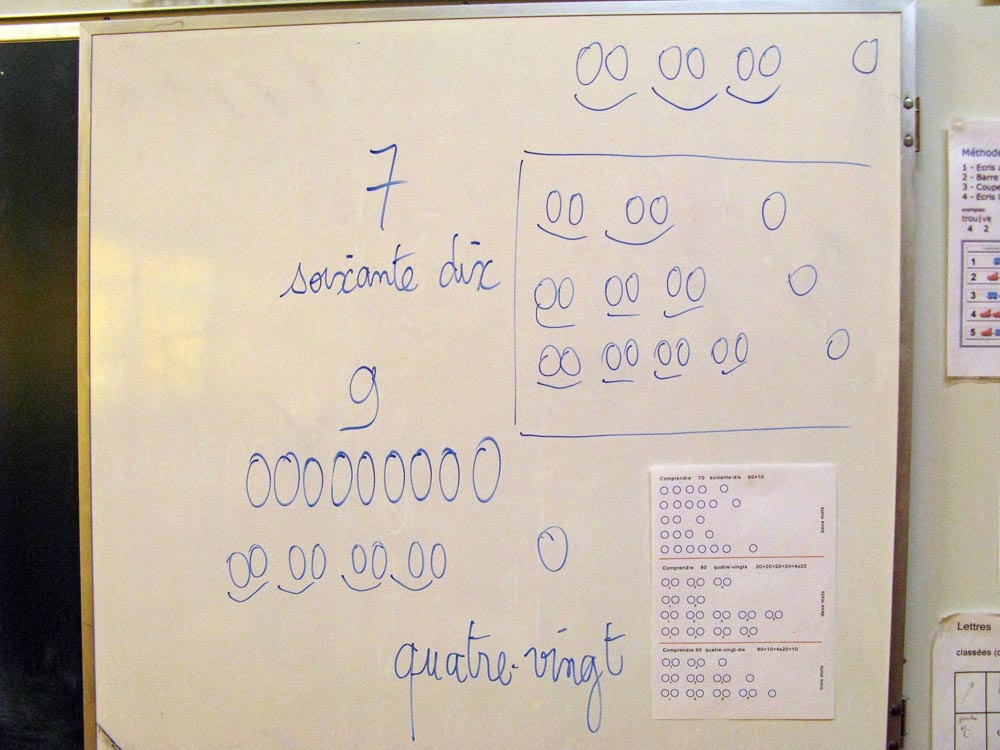 7
soixante dix
9
quatre-vingt
Comprendre 70 soixante-dix 60+10
deux mots
Comprendre 80 quatre-vingts 20+20+20+20=4x20
deux mots
Comprendre 90 quatre-vingt-dix 80+10=4x20+10
trois mots
Méthode
1 - Ecris
2 - Barre
3 - Coupe
4 - Ecris
trou|ve
4 2
1
2
3
4
5
Lettres
classées